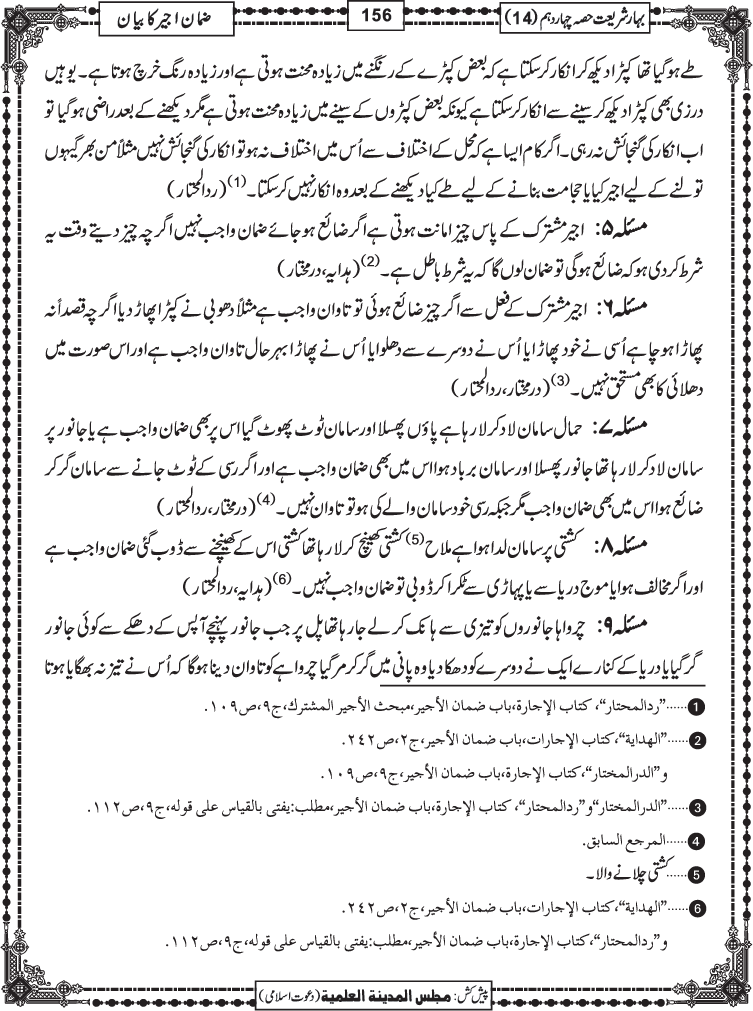 بہار شریعت حصہ چہاردہم (14)
156
ضمان اجیر کا بیان
طے ہوگیا تھا کپڑا دیکھ کر انکار کرسکتا ہے کہ بعض کپڑے کے رنگنے میں زیادہ محنت ہوتی ہے اور زیادہ رنگ خرچ ہوتا ہے۔ یوہیں
درزی بھی کپڑا دیکھ کر سینے سے انکار کرسکتا ہے کیونکہ بعض کپڑوں کے سینے میں زیادہ محنت ہوتی ہے مگر دیکھنے کے بعد راضی ہوگیا تو
اب انکار کی گنجائش نہ رہی۔ اگر کام ایسا ہے کہ محل کے اختلاف سے اُس میں اختلاف نہ ہو تو انکار کی گنجائش نہیں مثلاً من بھر گیہوں
تولنے کے لیے اجیر کیا یا حجامت بنانے کے لیے طے کیا دیکھنے کے بعد وہ انکار نہیں کرسکتا۔(1) (ردالمحتار)
مسئلہ ۵: اجیر مشترک کے پاس چیز امانت ہوتی ہے اگر ضائع ہوجائے ضمان واجب نہیں اگرچہ چیز دیتے وقت یہ
شرط کردی ہو کہ ضائع ہوگی تو ضمان لوں گا کہ یہ شرط باطل ہے۔(2) (ہدایہ، درمختار)
مسئلہ ۶: اجیر مشترک کے فعل سے اگر چیز ضائع ہوئی تو تاوان واجب ہے مثلاً دھوبی نے کپڑا پھاڑ دیا اگرچہ قصداً نہ
پھاڑا ہو چاہے اُسی نے خود پھاڑا یا اُس نے دوسرے سے دھلوایا اُس نے پھاڑا بہرحال تاوان واجب ہے اور اس صورت میں
دھلائی کا بھی مستحق نہیں۔(3) (درمختار، ردالمحتار)
مسئلہ ۷: حمال سامان لاد کر لا رہا ہے پاؤں پھسلا اور سامان ٹوٹ پھوٹ گیا اس پر بھی ضمان واجب ہے یا جانور پر
سامان لاد کر لا رہا تھا جانور پھسلا اور سامان برباد ہوا اس میں بھی ضمان واجب ہے اور اگر رسی کے ٹوٹ جانے سے سامان گر کر
ضائع ہوا اس میں بھی ضمان واجب مگر جبکہ رسی خود سامان والے کی ہو تو تاوان نہیں۔(4) (درمختار، ردالمحتار)
مسئلہ ۸: کشتی پر سامان لدا ہوا ہے ملاح(5) کشتی کھینچ کر لا رہا تھا کشتی اس کے کھینچنے سے ڈوب گئی ضمان واجب ہے
اور اگر مخالف ہوا یا موج دریا سے یا پہاڑی سے ٹکرا کر ڈوبی تو ضمان واجب نہیں۔(6) (ہدایہ، ردالمحتار)
مسئلہ ۹: چرواہا جانوروں کو تیزی سے ہانک کر لے جارہا تھا پل پر جب جانور پہنچے آپس کے دھکے سے کوئی جانور
گر گیا یا دریا کے کنارے ایک نے دوسرے کو دھکا دیا وہ پانی میں گر کر مر گیا چرواہے کو تاوان دینا ہوگا کہ اُس نے تیز نہ بھگایا ہوتا
1 ......”ردالمحتار“، كتاب الإجارة،باب ضمان الأجير،مبحث الأجير المشترك،ج۹،ص۱۰۹.
2 ......”الهداية“،كتاب الإجارات،باب ضمان الأجير،ج۲،ص۲۴۲.
و”الدرالمختار“،كتاب الإجارة،باب ضمان الأجير،ج۹،ص۱۰۹.
3 ......”الدرالمختار“و”ردالمحتار“، كتاب الإجارة،باب ضمان الأجير،مطلب:يفتى بالقياس على قوله،ج۹،ص۱۱۲.
4 ......المرجع السابق.
5 ......کشتی چلانے والا۔
6 ......”الهداية“،كتاب الإجارات،باب ضمان الأجير،ج۲،ص۲۴۲.
و”ردالمحتار“،كتاب الإجارة،باب ضمان الأجير،مطلب:يفتى بالقياس على قوله،ج۹،ص۱۱۲.
پیش کش: مجلس المدینۃ العلمیۃ (دعوت اسلامی)